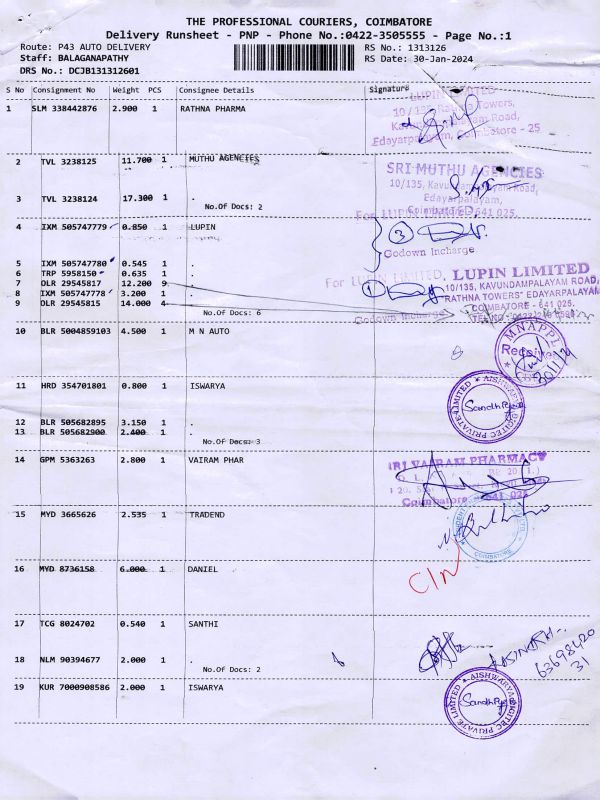 THE PROFESSIONAL COURIERS, COIMBATORE
Delivery Runsheet - PNP - Phone No.:0422-3505555 - Page No.:1
Route: P43 AUTO DELIVERY RS No.: 1313126
Staff: BALAGANAPATHY RS Date: 30-Jan-2024
DRS No.: DCJB131312601
S No Consignment No Weight PCS Consignee Details Signature
1 SLM 338442876 2.900 1 RATHNA PHARMA
LUPIN LIMITED
10/135, Rathna Towers,
Kavundampalayam Road,
Edayarpalayam, Coimbatore - 25
2 TVL 3238125 11.700 1 MUTHU AGENCIES
SRI MUTHU AGENCIES
10/135, Kavundampalayam Road,
Edayarpalayam,
3 TVL 3238124 17.300 1 .
No.Of Docs: 2
Coimbatore - 641 025.
For LUPIN LIMITED
4 IXM 505747779 0.850 1 LUPIN
3
Godown Incharge
5 IXM 505747780 0.545 1 .
6 TRP 5958150 0.635 1 .
7 DLR 29545817 12.200 9 .
8 IXM 505747778 3.200 1 .
9 DLR 29545815 14.000 4 .
No.Of Docs: 6
For LUPIN LIMITED
1
Godown Incharge
LUPIN LIMITED
10/135, KAVUNDAMPALAYAM ROAD,
"RATHNA TOWERS" EDAYARPALAYAM
COIMBATORE - 641 025.
10 BLR 5004859103 4.500 1 M N AUTO
MNAPPL
Received
11 HRD 354701801 0.800 1 ISWARYA
12 BLR 505682895 3.150 1 .
13 BLR 505682900 2.400 1 .
No.Of Docs: 3
14 GPM 5363263 2.800 1 VAIRAM PHAR
SRI VAIRAM PHARMACY
Coimbatore - 641 025
15 MYD 3665626 2.535 1 TRADEND
COIMBATORE
16 MYD 8736158 6.000 1 DANIEL
17 TCG 8024702 0.540 1 SANTHI
18 NLM 90394677 2.000 1 .
No.Of Docs: 2
63698420
31
19 KUR 7000908586 2.000 1 ISWARYA